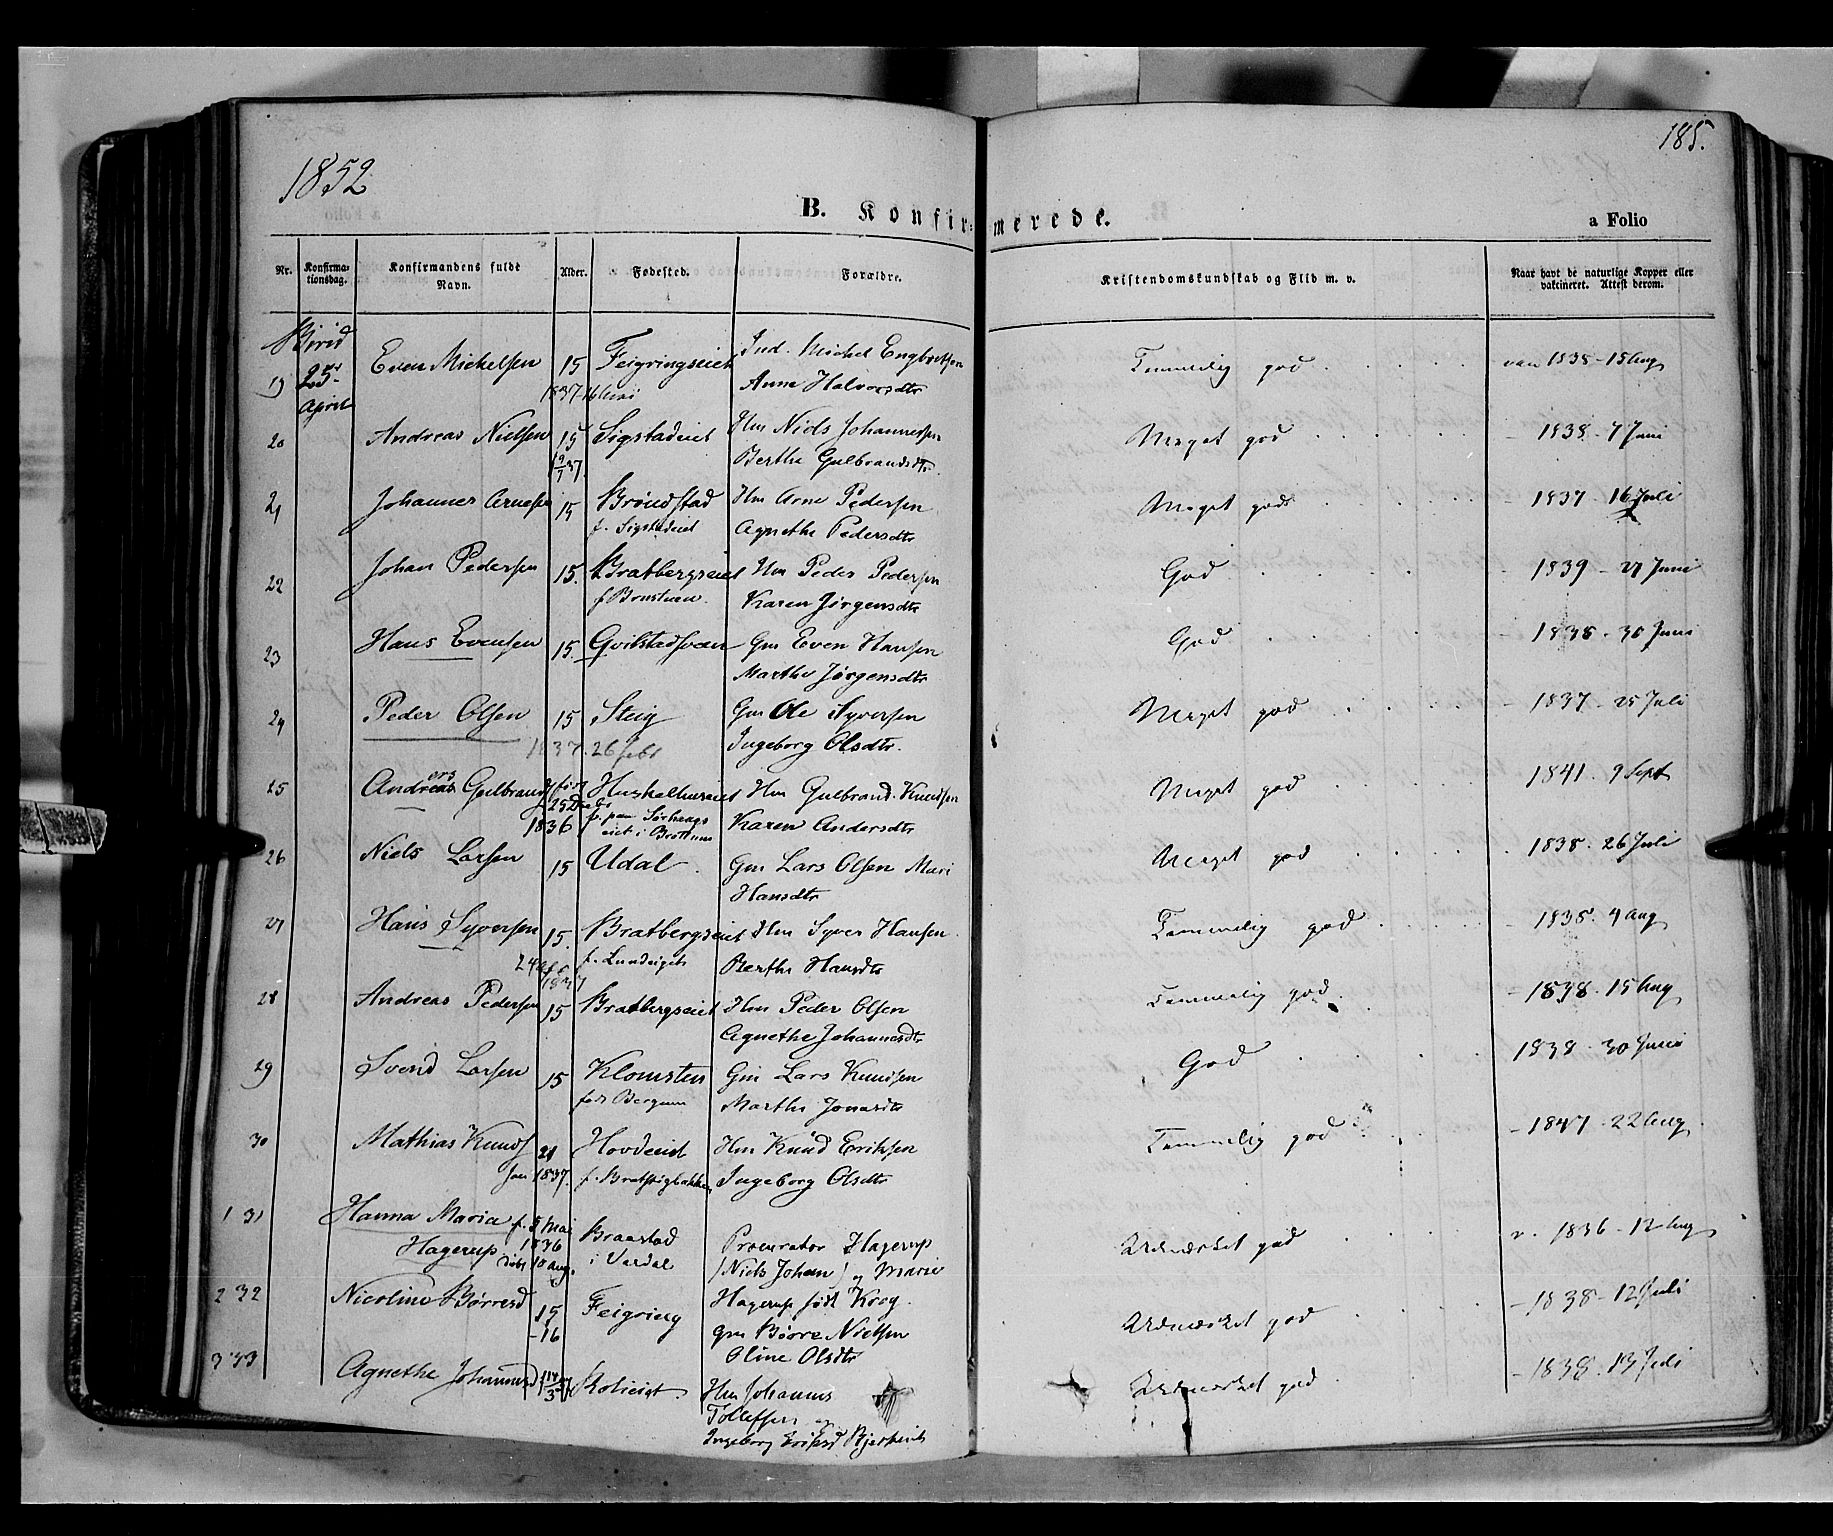 1852
185.
B. Konfirmerede.
a Folio
Nr. Konfirmationsdag. Konfirmandens fulde Navn. Alder. Fødested. Forældre. Kristendomskundskab og Flid m. v. Naar havt de naturlige Kopper eller vakcineret. Attest derom.
Birid
19 25de Even Mickelsen 15 Feigringseiet Ind. Michel Engbretsen Temmelig god vac 1838 - 15 Aug
April 1837 16 Anne Halvorsdtr
20 Andreas Nielsen 15 Sigstadeiet Hm Niels Johannessen Meget god - 1838 - 7 Juni
9/7 37. Berthe Gulbrandsdtr
21 Johannes Arnesen 15 Brøndstad Hm Arne Pedersen Meget god - 1837 - 16 Juli
f. Sigstadeiet Agnethe Pedersdtr
22 Johan Pedersen 15. Bratbergseiet Hm Peder Pedersen God - 1839 - 27 Juni
f Karen Jørgensdtr
23 Hans Evensen 15. Gm Even Hansen God - 1838 - 30 Juni
Marthe Jørgensdtr
24 Peder Olsen 15 Steig Gm Ole Syversen Meget god - 1837 - 25 Juli
1837. 26 febr Ingeborg Olsdtr.
25 Andreas ers Gulbrands født Huskelhuseiet Hm Gulbrand Knudsen Meget god - 1841 - 9 Sept
25 Decbr 1836 f. paa eiet i Brøttum Karen Andersdtr
26 Niels Larsen 15 Udal. Gm Lars Olsen Mari Meget god - 1838 - 26 Juli
Hansdtr
27 Hans Syversen 15. Bratbergseiet Hm Syver Hansen Temmelig god - 1838 - 4 Aug
24 1837 f. Berthe Hansdtr
28 Andreas Pedersen 15 Bratbergseiet Hm Peder Olsen Temmelig god - 1838 - 15 Aug
Agnethe Johannesdtr
29 Svend Larsen 15 Klomsten Gm Lars Knudsen God 1838 - 30 Juni
født Bergum Marthe Jonasdtr
30 Mathias Knuds 21 Hovdeeiet Hm Knud Eriksen Temmelig god - 1847 - 22 Aug
Jan 1837. f. Ingeborg Olsdtr
1 31 Hanna Maria f. 5 Mai Braastad Procurator Hagerup Udmærket god v. 1836 - 12 Aug
Hagerup 1836 døbt 10 Aug. i Vardal (Niels Johan) og Marie
2 32 Nicoline Børresd 15 Feigring Hagerup født Krog. Udmærket god - 1838 - 12 Juli
-16 Gm Børre Nielsen
Oline Olsdtr
3 33 Agnethe Johannesd Hm Johannes Udmærket god - 1838 - 13 Juli
Tollefsen og
Ingeborg Eriksd